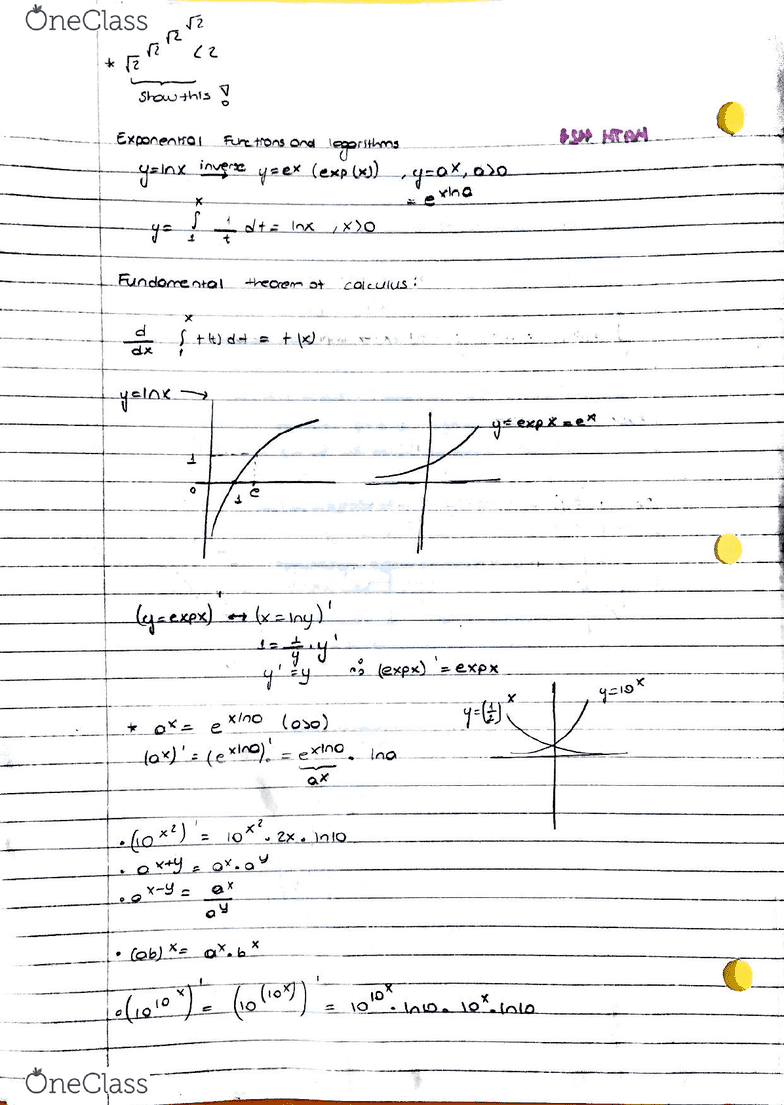 OneClass
* √2^√2^√2^√2 < 2
Show this !
Exponential Functions and logarithms
y=lnx inverse → y=e^x (exp(x)) , y=a^x, a>0
= e^xlna
y= ∫_1^x 1/t dt = lnx , x>0
Fundamental theorem of calculus:
d/dx ∫_1^x f(t) dt = f(x)
y=lnx →
y=expx=e^x
1
0 1 e
(y=expx)' ↔ (x=lny)'
1= 1/y . y'
y'=y ∴ (expx)'=expx
y=(1/2)^x y=10^x
* a^x = e^xlna (a>0)
(a^x)' = (e^xlna)' = e^xlna . lna
a^x
• (10^x^2)' = 10^x^2 . 2x . ln10
• a^x+y = a^x . a^y
• a^x-y = a^x/a^y
• (ab)^x = a^x . b^x
• (10^10^x)' = (10^(10^x))' = 10^10^x . ln10 . 10^x . ln10
OneClass